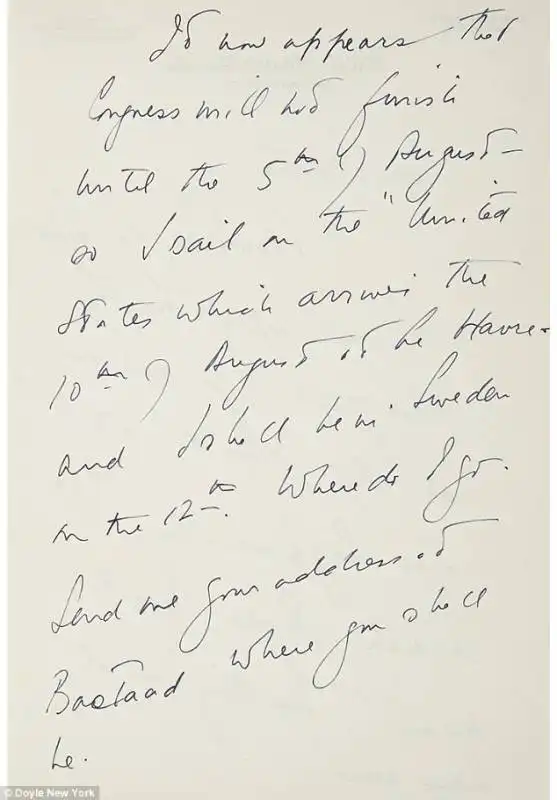 It now appears that
Congress will not finish
until the 5th of August -
so I sail on the "United
States which arrives the
10th of August at Le Havre -
and I shall be in Sweden
on the 12th. Where do I go.
Send me your address at
Bastaad where you shall
be.
© Doyle New York